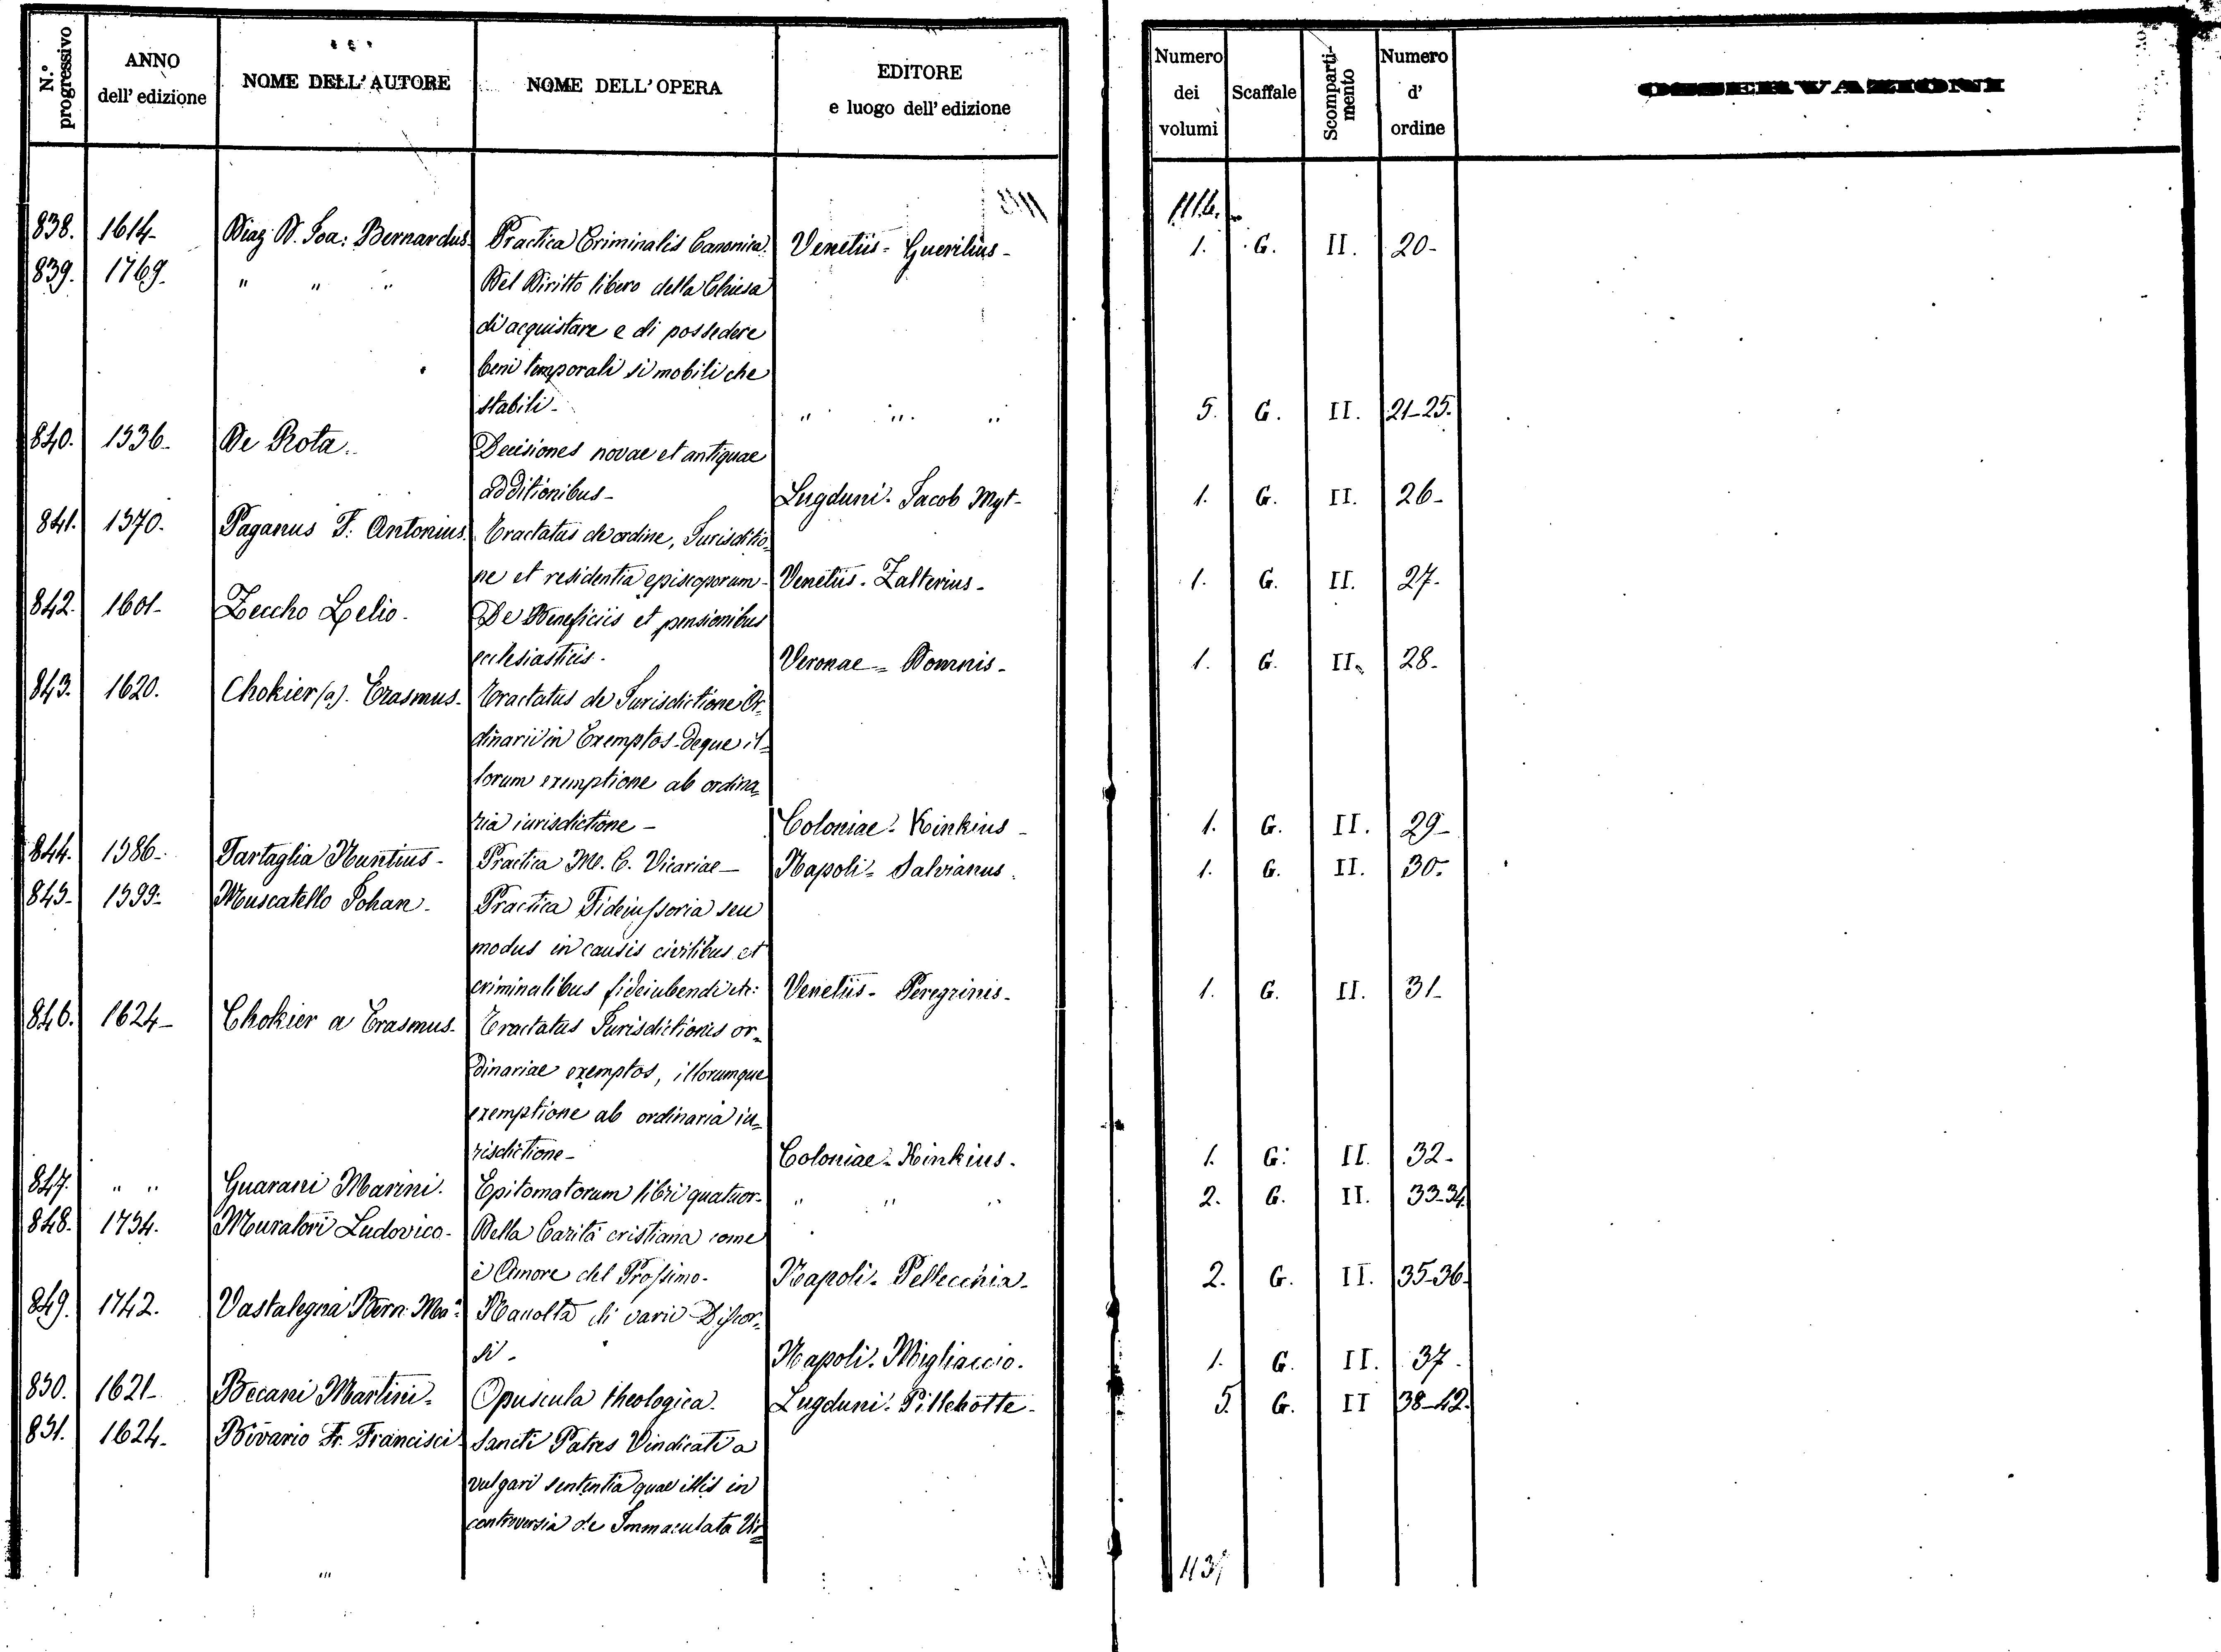 N.° progressivo
ANNO dell' edizione
NOME DELL' AUTORE
NOME DELL' OPERA
EDITORE e luogo dell' edizione
Numero dei volumi
Scaffale
Scomparti-mento
Numero d' ordine
OSSERVAZIONI
1116.
838. 1614- Diaz D. Joa: Bernardus. Practica Criminalis Canonica. Venetiis- Guerilius- 1. G. II. 20-
839. 1769. " " " Del Diritto libero della Chiesa
di acquistare e di possedere
beni temporali si mobili che
stabili- " " " 5. G. II. 21-25.
840. 1536- De Rota. Decisiones novae et antiquae
additionibus- Lugduni- Jacob Myt- 1. G. II. 26-
841. 1570. Paganus F: Antonius. Tractatus de ordine, Jurisditio=
ne et residentia episcoporum- Venetiis- Zalterius- 1. G. II. 27-
842. 1601- Zeccho Lelio- De Beneficiis et pensionibus
ecclesiasticis. Veronae= Domnis- 1. G. II. 28-
843. 1620. Chokier (a). Erasmus- Tractatus de Jurisdictione Or=
dinarii in Exemptos-Deque il=
lorum exemptione ab ordina=
ria iurisdictione- Coloniae- Kinkius- 1. G. II. 29-
844. 1586- Tartaglia Nuntius- Practica M. C. Vicariae- Napoli= Salvianus. 1. G. II. 30-
845- 1599- Muscatello Johan- Practica Fideiussoria seu
modus in causis civilibus et
criminalibus fideiubendi etc: Venetiis- Peregrinis- 1. G. II. 31-
846. 1624- Chokier a Erasmus- Tractatus Jurisdictionis or=
dinariae exemptos, illorumque
exemptione ab ordinaria iu=
risdictione- Coloniae- Kinkius. 1. G. II. 32-
847. " " Guarani Marini. Epitomatorum libri quatuor- " " " 2. G. II. 33-34.
848. 1734. Muratori Ludovico- Della Carità cristiana come
è Amore del Prossimo- Napoli- Pellecchia- 2. G. II. 35-36.
849. 1742. Vastalegna Bern. Ma: Raccolta di varii Discor=
si- Napoli. Migliaccio. 1. G. II. 37.
850. 1621- Becani Martini- Opuscula theologica. Lugduni- Pillehotte- 5. G. II 38-42.
851. 1624- Bivario Fr. Francisci- Sancti Patres Vindicati a
vulgari sententia quae illis in
controversia de Immaculata Vir=
113